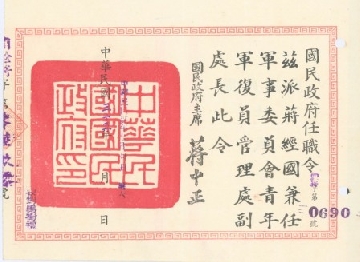 國民政府任職令
第0690號
茲派蔣經國兼任
軍事委員會青年
軍復員管理處副
處長此令
國民政府主席 蔣中正
中華民國 月 日
中華民國國民政府印